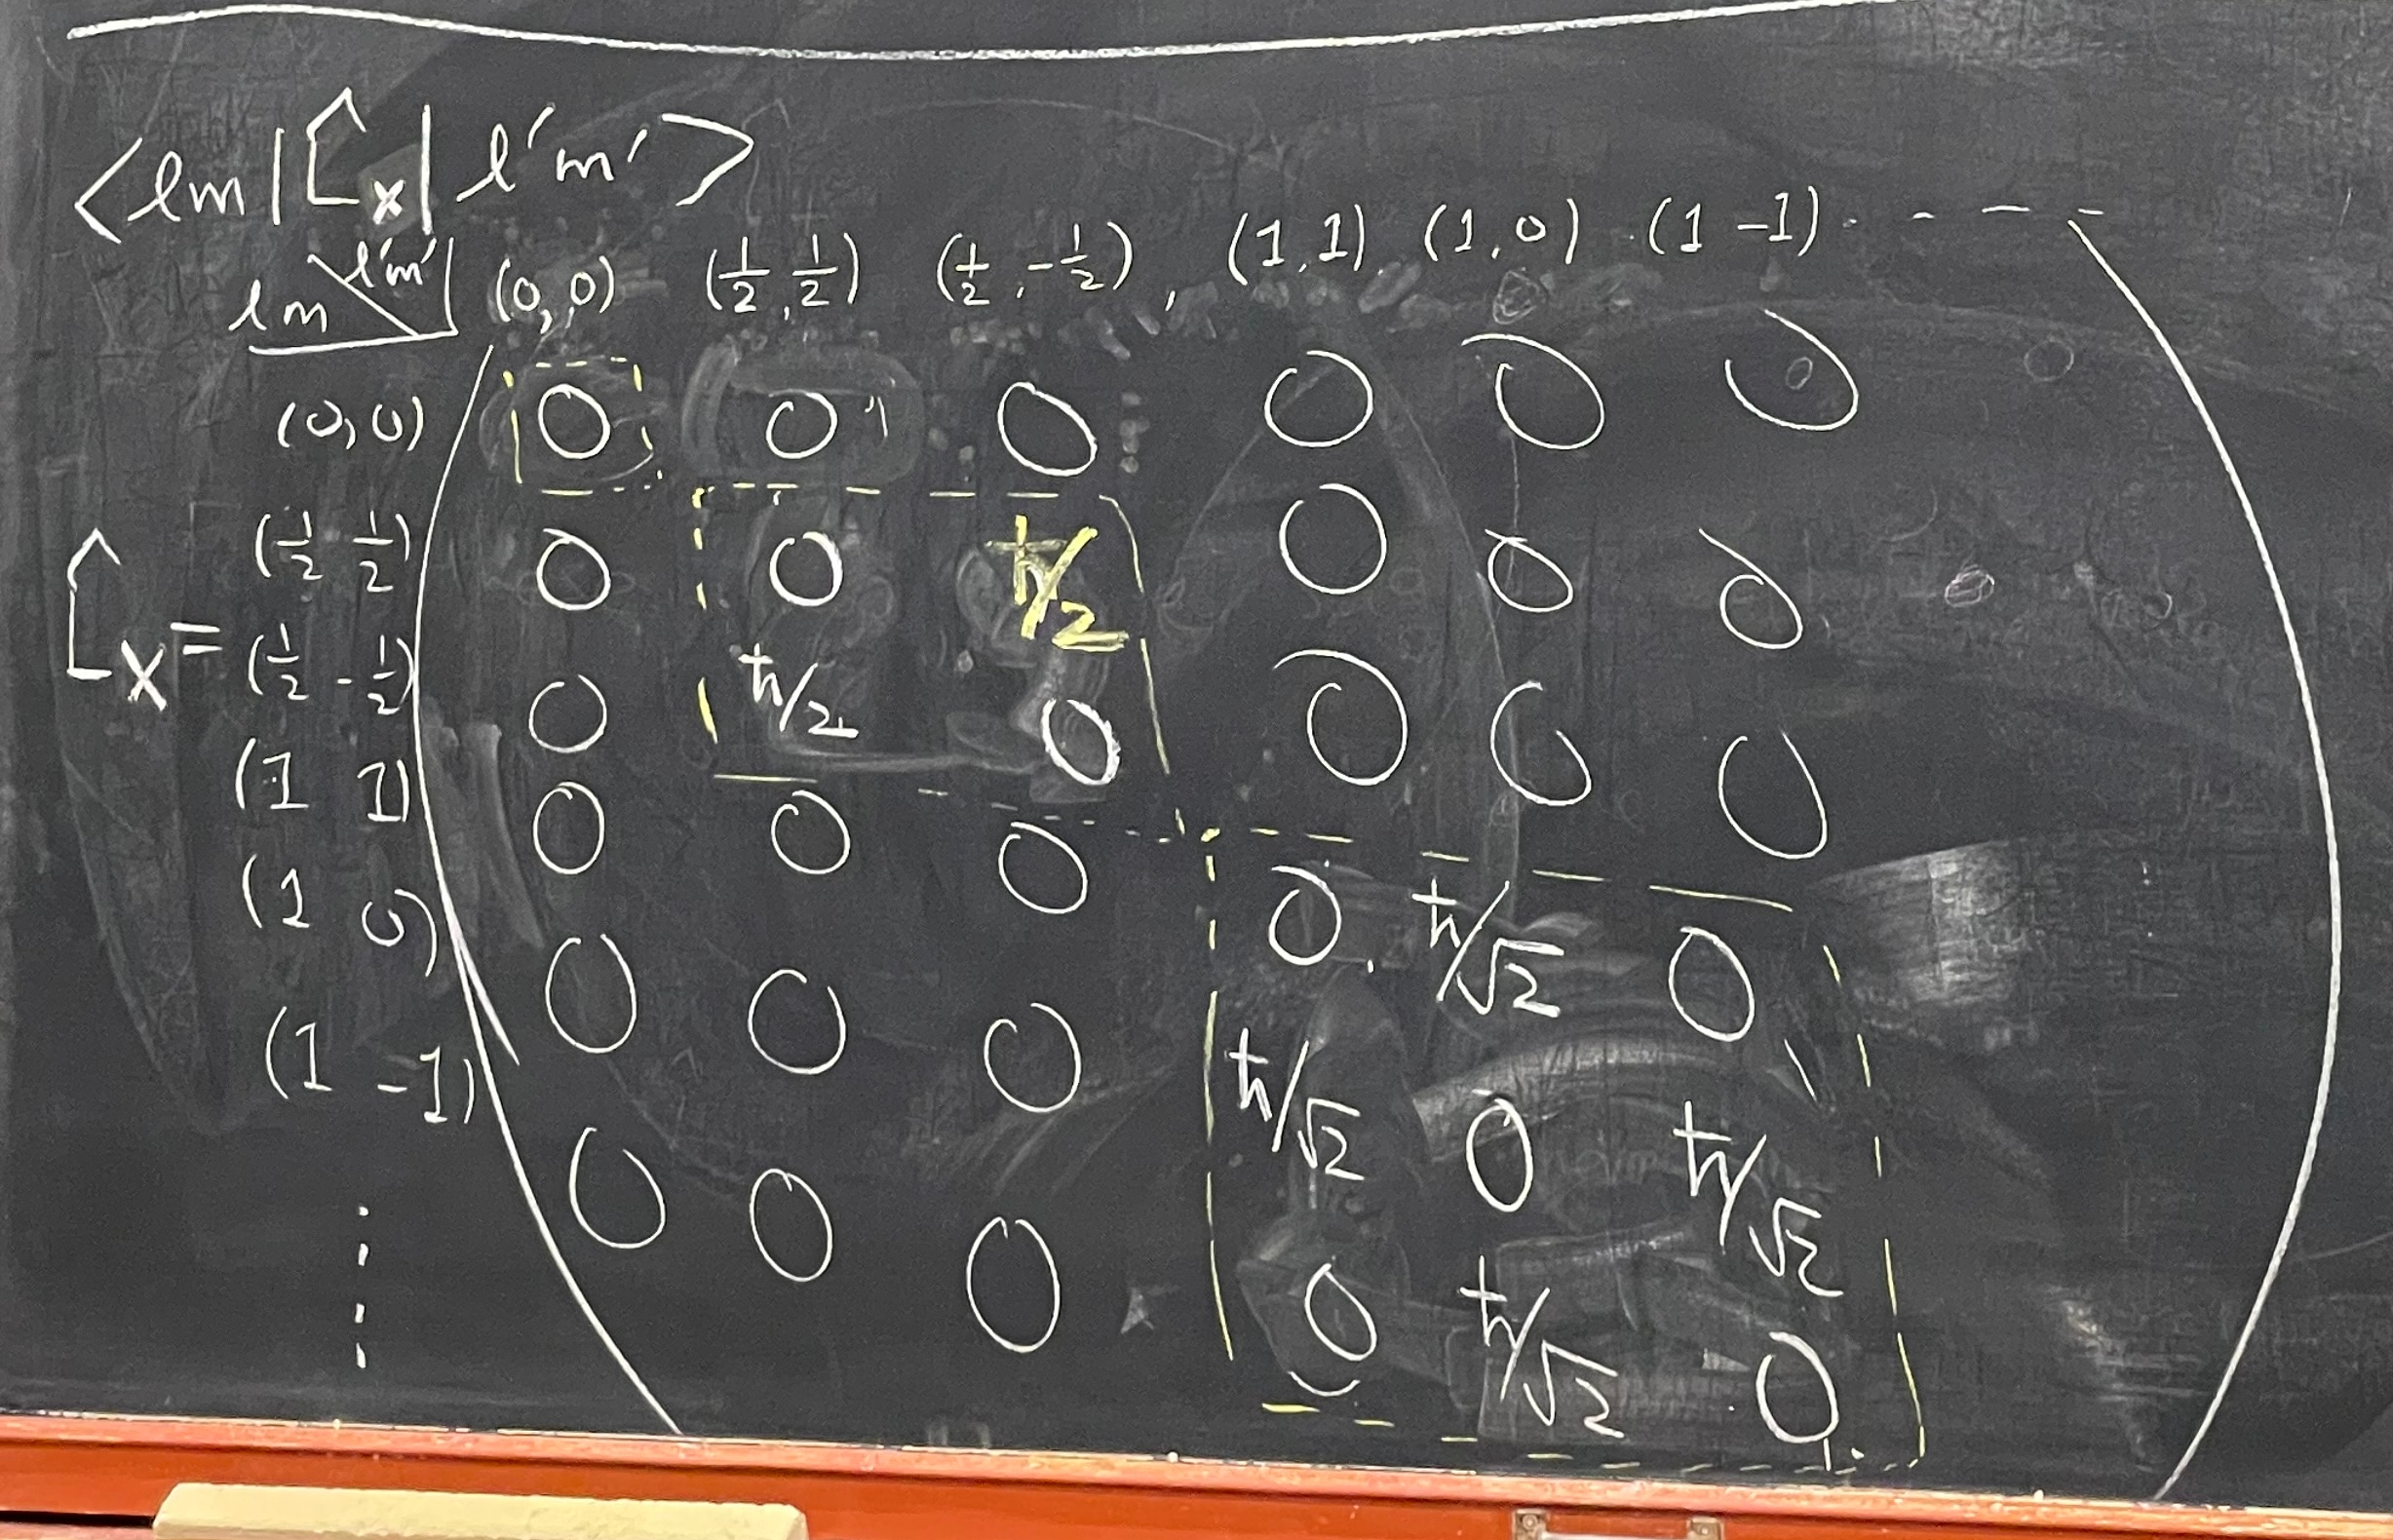 <lm|L̂x|l'm'>
lm \ l'm' | (0,0) (1/2, 1/2) (1/2, -1/2), (1,1) (1,0) (1 -1) - - - -
(0,0) 0 0 0 0 0 0
(1/2 1/2) 0 0 ħ/2 0 0 0
L̂x = (1/2 -1/2) 0 ħ/2 0 0 0 0
(1 1) 0 0 0 0 ħ/√2 0
(1 0) 0 0 0 ħ/√2 0 ħ/√2
(1 -1) 0 0 0 0 ħ/√2 0